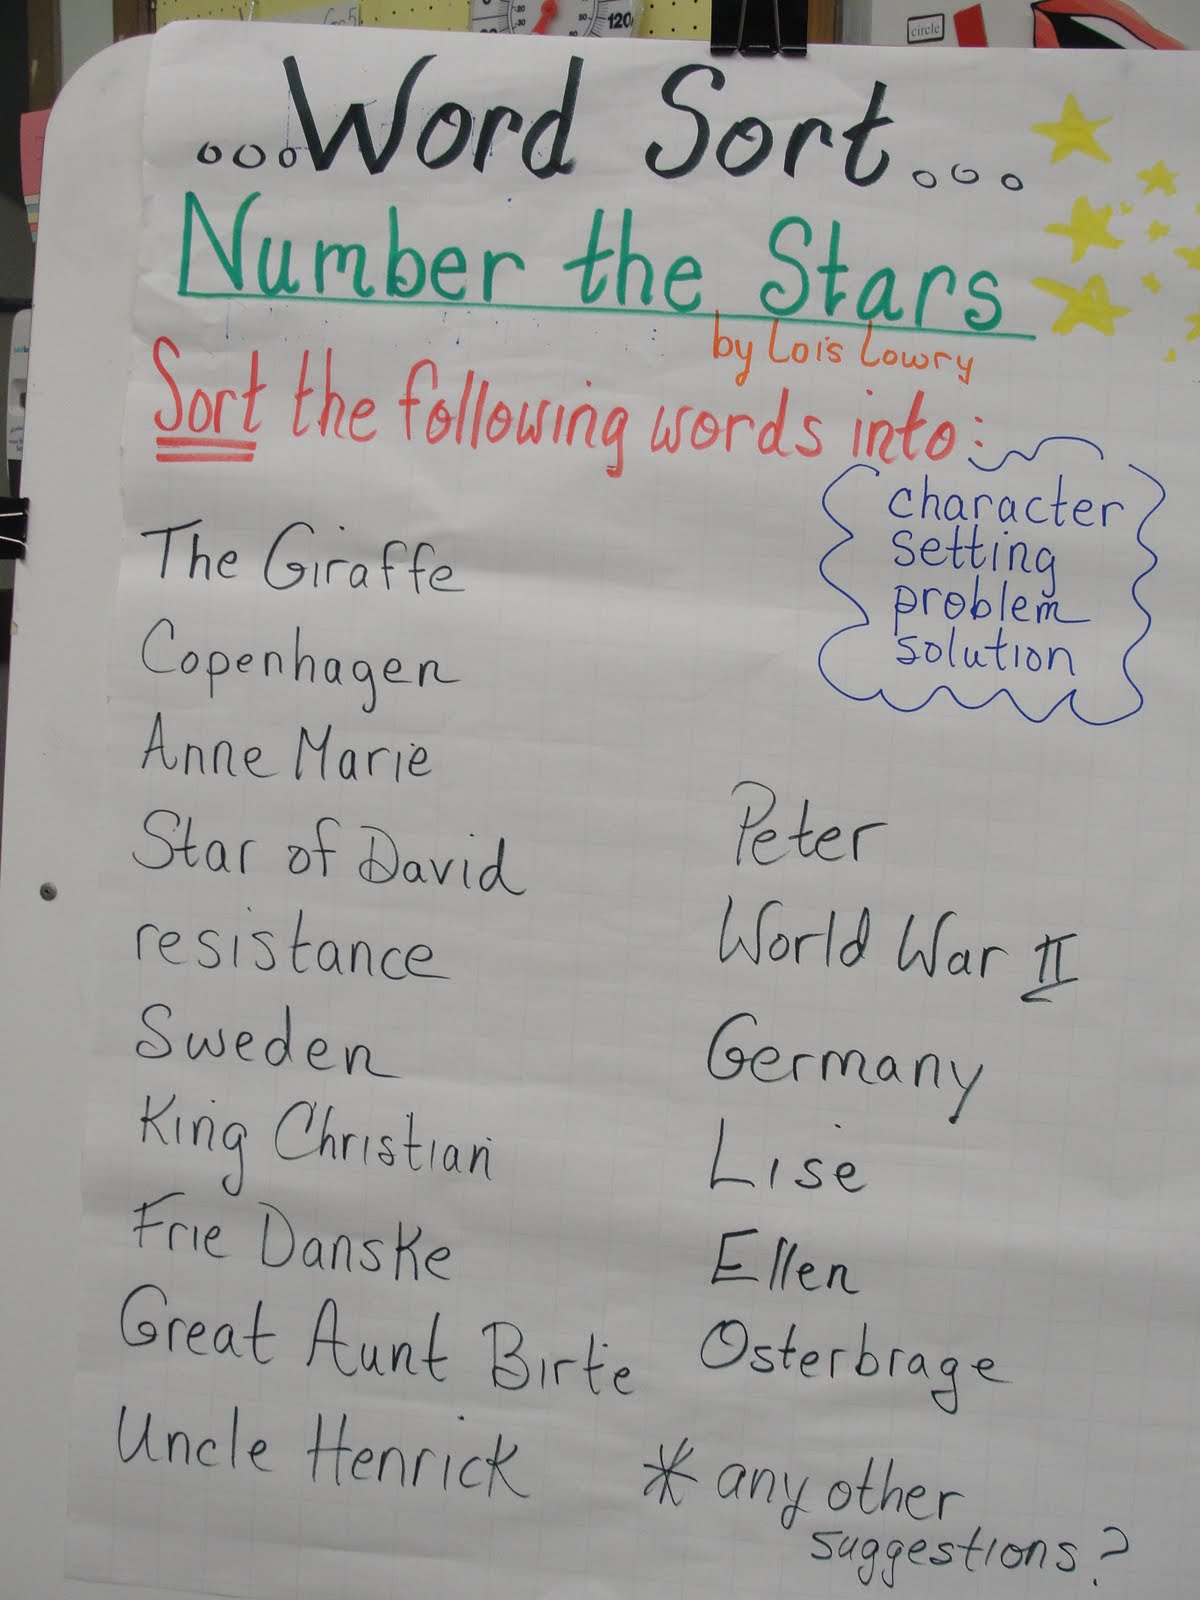 circle
120
...Word Sort...
Number the Stars
by Lois Lowry
Sort the following words into:
character
setting
problem
solution
The Giraffe
Copenhagen
Anne Marie
Star of David
resistance
Sweden
King Christian
Frie Danske
Great Aunt Birte
Uncle Henrick
Peter
World War II
Germany
Lise
Ellen
Osterbrage
* any other
suggestions?